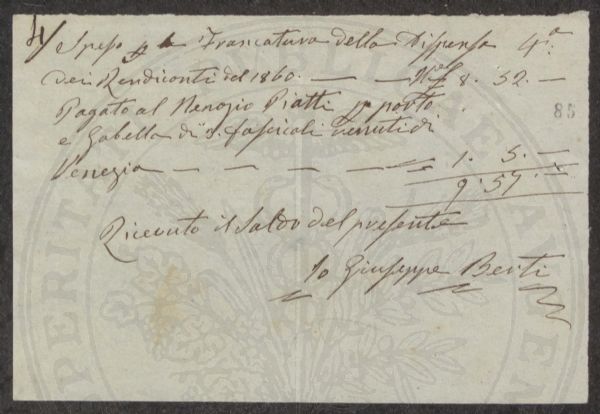 4/ Spese p la Francatura della Dispensa 4.a
dei Rendiconti del 1860. — — 8. 52. —
Pagato al Negozio Piatti p porto
e Gabella di 3. fascicoli venuti di
Venezia — — — — — 1. 5. —
9. 57. —
85
Ricevuto il Saldo del presente
Io Giuseppe Berti